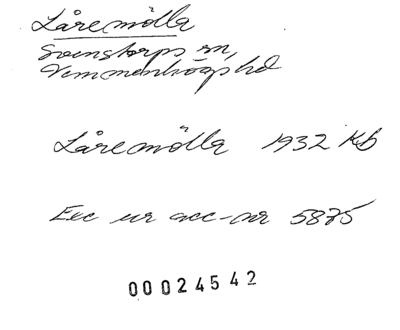 Låremölla
Svenstorps sn,
Vemmenhögs hd
Låremölla 1932 Kb
Exc ur acc-nr 5875
00024542